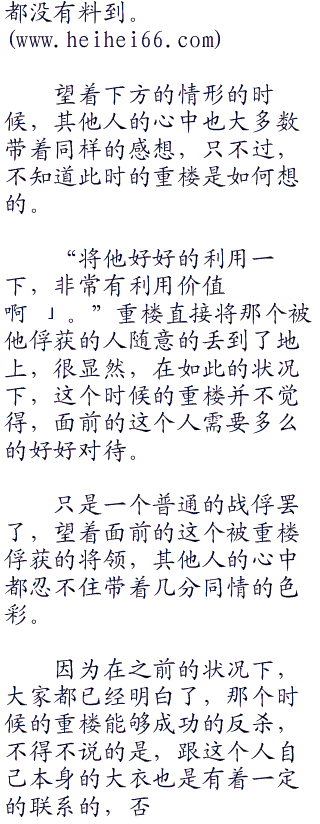 都没有料到。
(www.heihei66.com)
望着下方的情形的时
候，其他人的心中也大多数
带着同样的感想，只不过，
不知道此时的重楼是如何想
的。
“将他好好的利用一
下，非常有利用价值
啊 」。”重楼直接将那个被
他俘获的人随意的丢到了地
上，很显然，在如此的状况
下，这个时候的重楼并不觉
得，面前的这个人需要多么
的好好对待。
只是一个普通的战俘罢
了，望着面前的这个被重楼
俘获的将领，其他人的心中
都忍不住带着几分同情的色
彩。
因为在之前的状况下，
大家都已经明白了，那个时
候的重楼能够成功的反杀，
不得不说的是，跟这个人自
己本身的大衣也是有着一定
的联系的，否